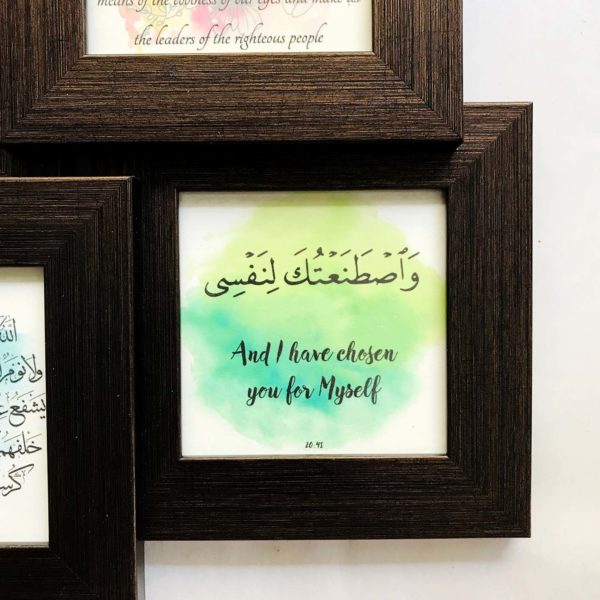 means of the coolness of our eyes and make us
the leaders of the righteous people
وَٱصْطَنَعْتُكَ لِنَفْسِى
And I have chosen
you for Myself
20:41
ولا نوم
يشفع
خلفهم